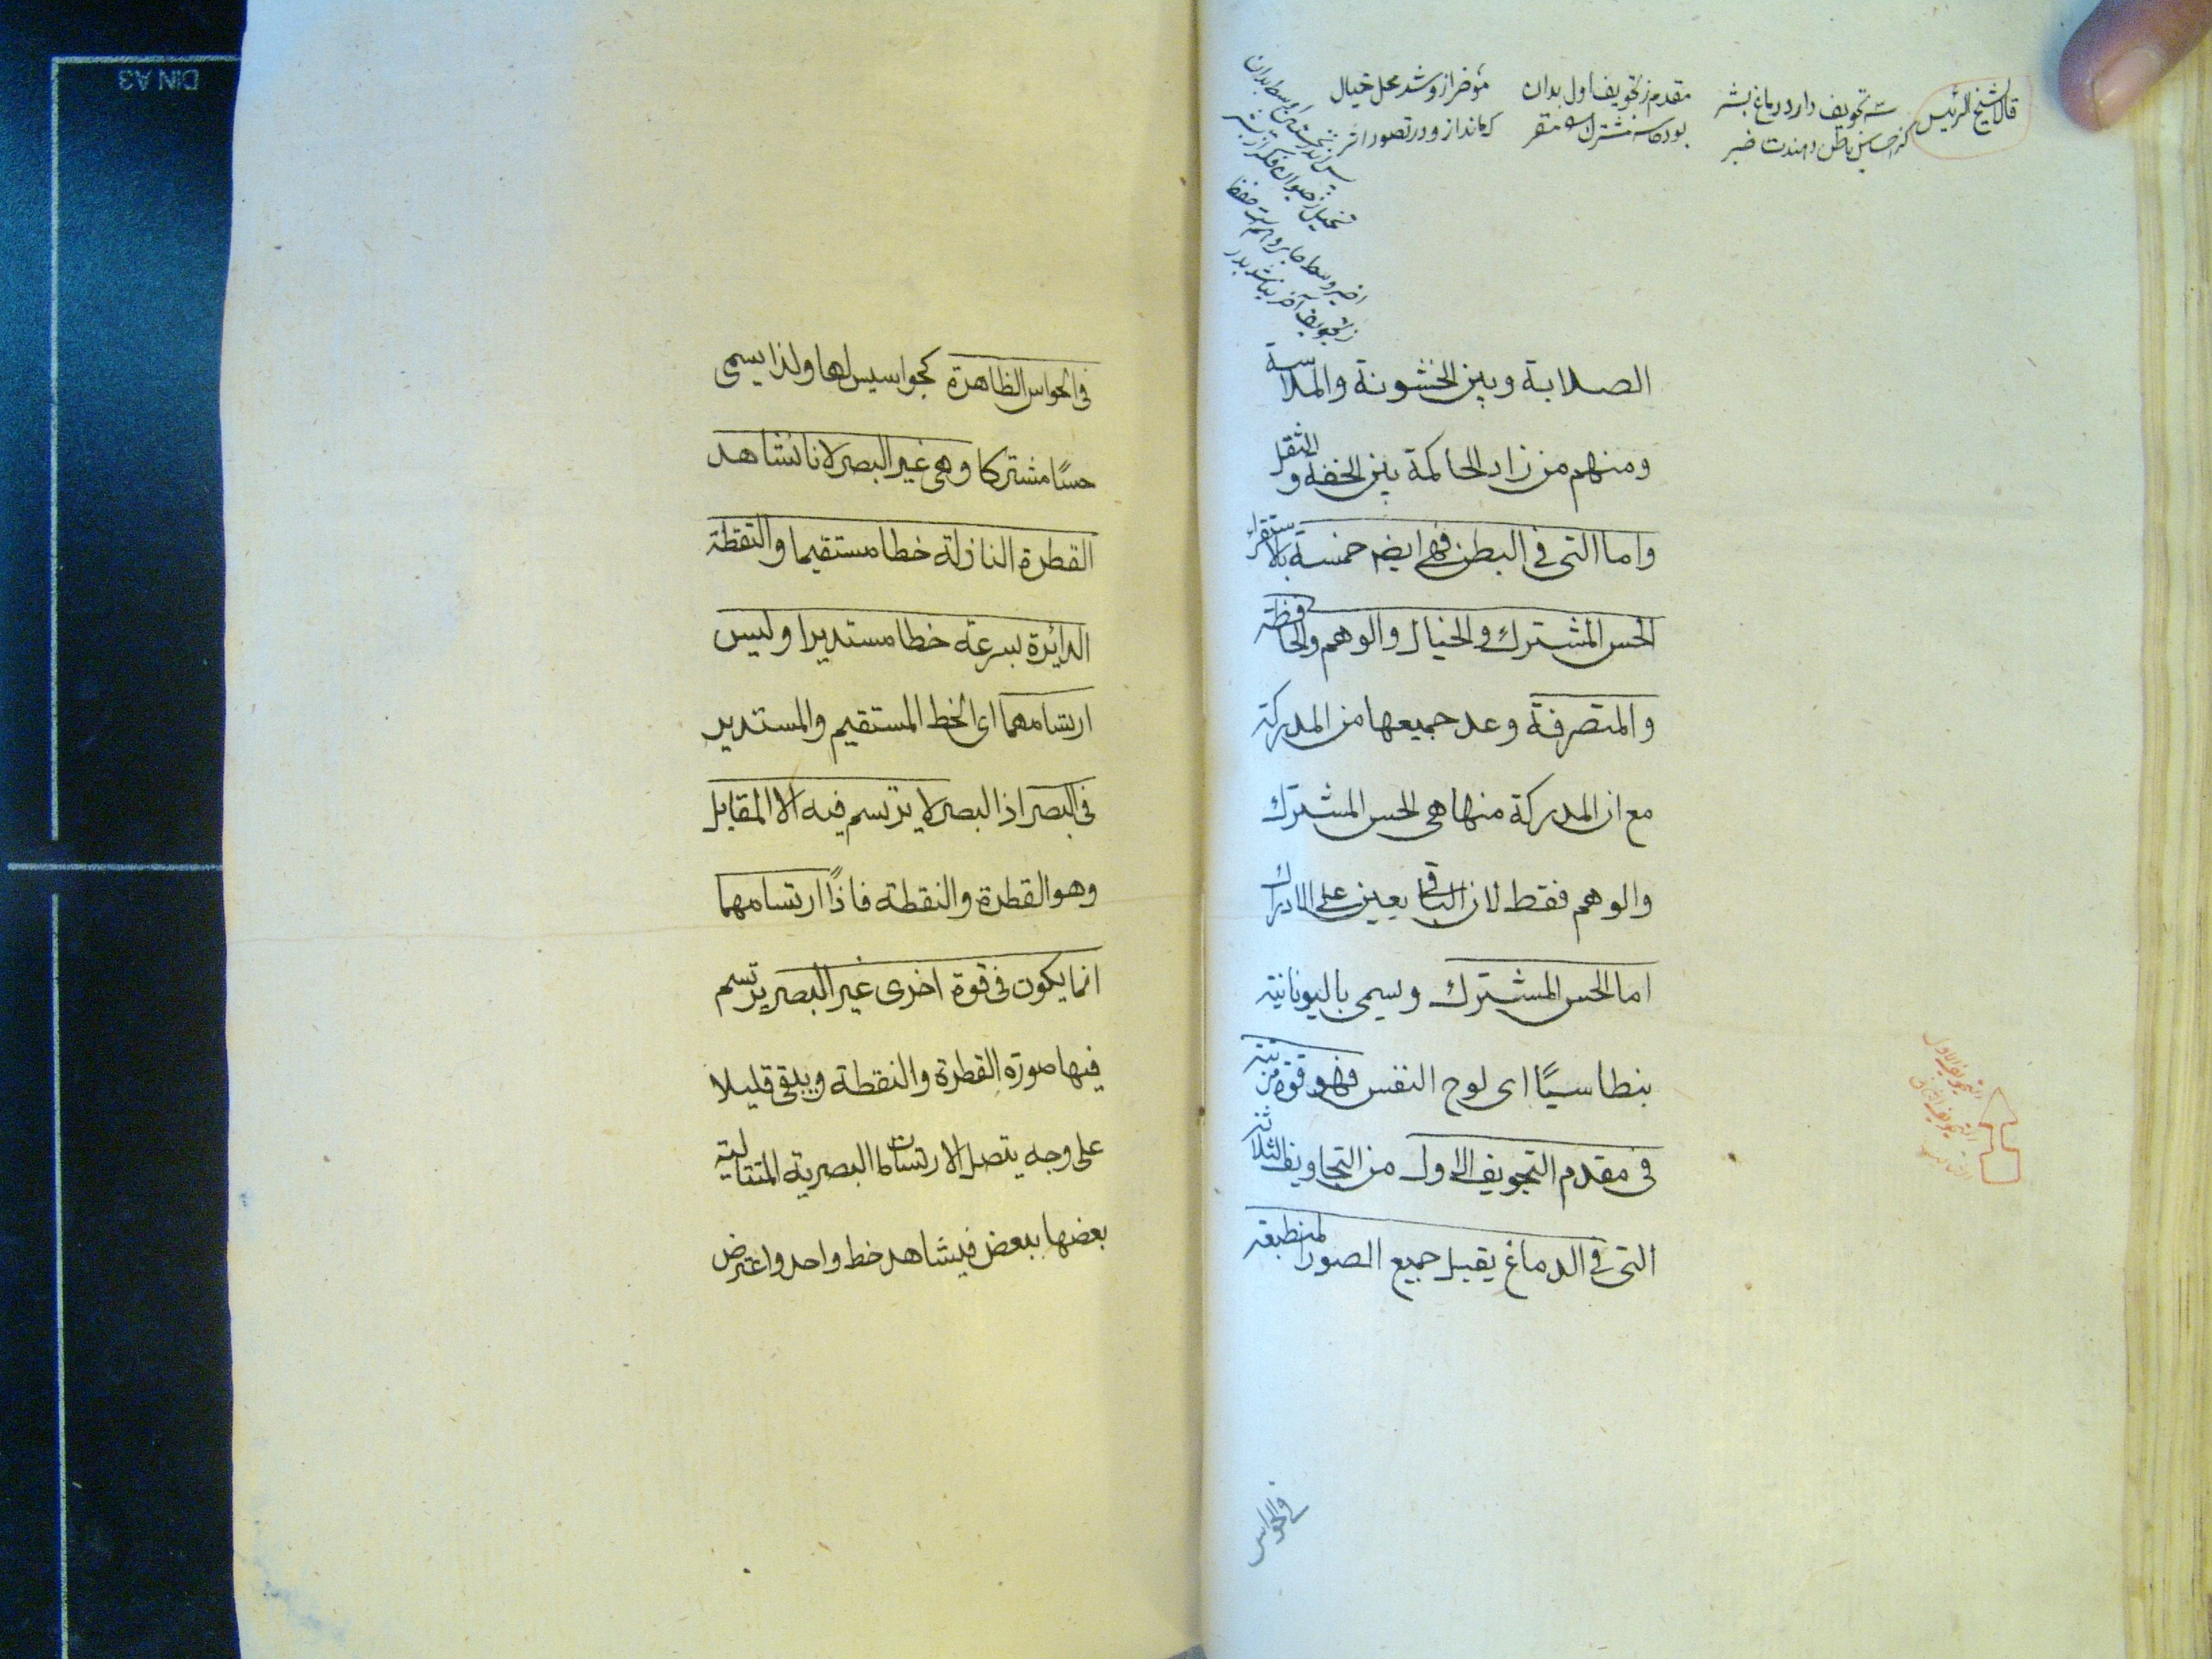 قال الشيخ الرئيس
سه تجويف دارد دماغ بشر
كز احساس باطن دهندت خبر
مقدم ز تجويف اول بدان
بود حس مشترك را مقر
مؤخر ازو شد محل خيال
كه ماند ازو در تصور اثر
پس اندر نخستين اوسط بدان
تخيل ز حيوان و فكر از بشر
اخير وسط جاى وهم است حفظ
ز تجويف آخر
الصلابة وبين الخشونة والملاسة
ومنهم من زاد الحاكمة بين الخفة والثقل
واما التى فى البطن فهى ايضم خمسة بالاستقراء
الحس المشترك والخيال والوهم والحافظة
والمتصرفة وعد جميعها من المدركة
مع ان المدركة منها هى الحس المشترك
والوهم فقط لان الباقى يعين على الادراك
اما الحس المشترك ويسمى باليونانية
بنطاسيًا اى لوح النفس فهو قوة مرتبة
فى مقدم التجويف الاول من التجاويف الثلاثة
التى فى الدماغ يقبل جميع الصور المنطبقة
التجويف الاول
فى الحواس
فى الحواس الظاهرة كجواسيس لها ولذا يسمى
حسًا مشتركا وهى غير البصر لانا نشاهد
القطرة النازلة خطا مستقيما والنقطة
الدائرة بسرعة خطا مستديرا وليس
ارتسامهما اى الخط المستقيم والمستدير
فى البصر اذ البصر لا يرتسم فيه الا المقابل
وهو القطرة والنقطة فاذًا ارتسامهما
انما يكون فى قوة اخرى غير البصر يرتسم
فيها صورة القطرة والنقطة ويبقى قليلا
على وجه يتصل الارتسامات البصرية المتتالية
بعضها ببعض فيشاهد خط واحد واعترض